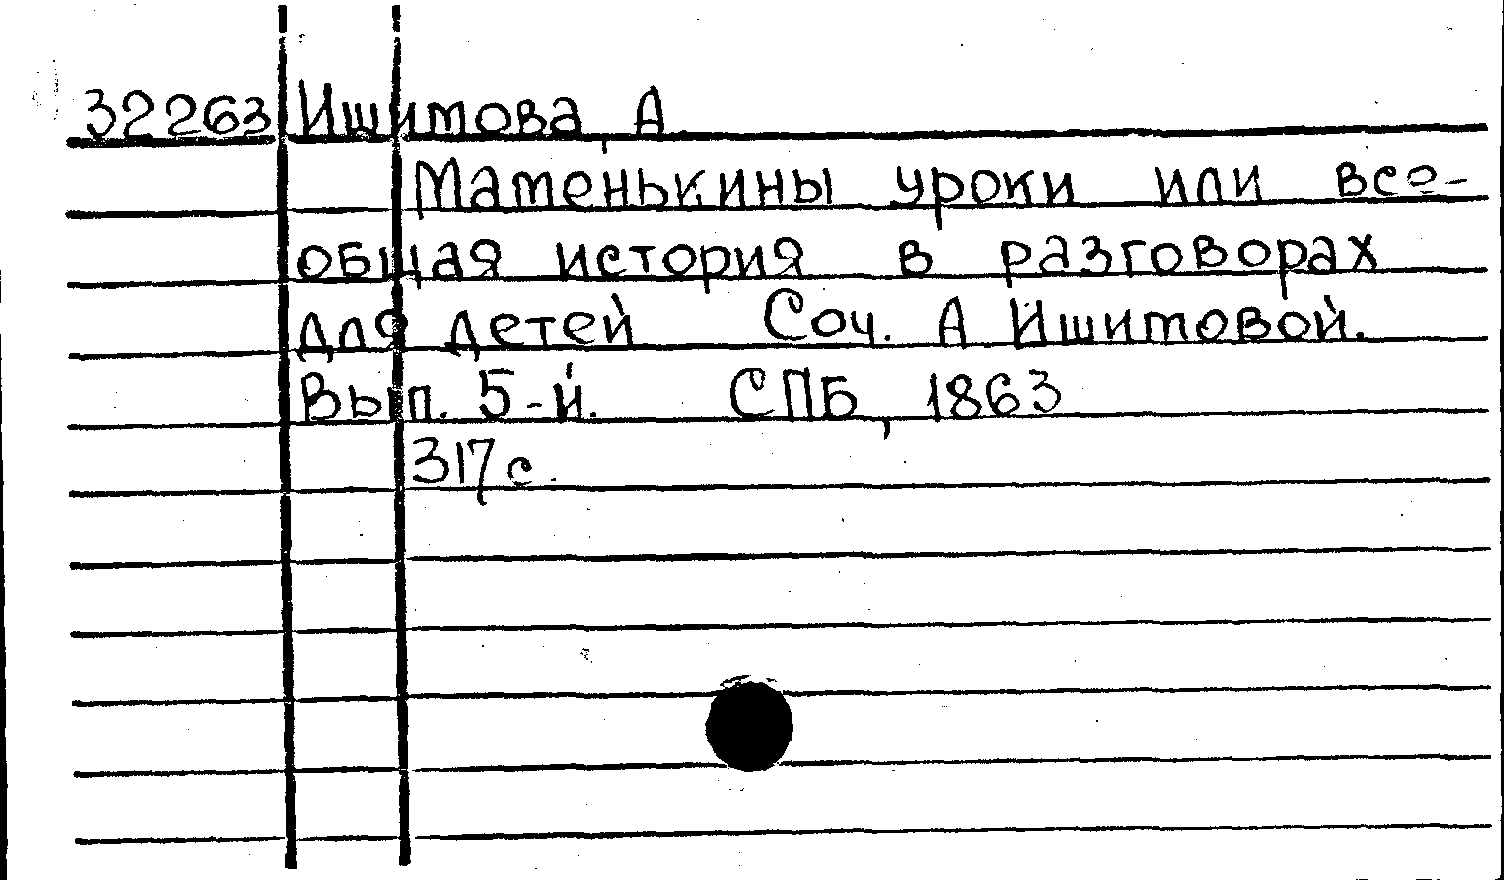 32263 Ишимова, А
Маменькины уроки или все-
общая история в разговорах
для детей Соч. А Ишимовой.
Вып. 5-й. СПБ, 1863
317с.